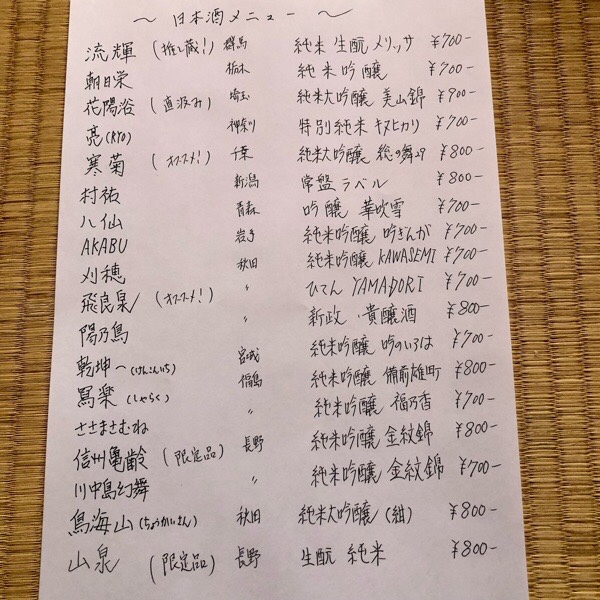 ～ 日本酒メニュー ～
流輝 (推し蔵!) 群馬 純米 生酛 メリッサ ¥700-
朝日栄 栃木 純米吟醸 ¥700-
花陽浴 (直汲み) 埼玉 純米大吟醸 美山錦 ¥700-
亮(RYO) 神奈川 特別純米 キヌヒカリ ¥700-
寒菊 (オススメ!) 千葉 純米大吟醸 総の舞29 ¥800-
村祐 新潟 常盤ラベル ¥800-
八仙 青森 吟醸 華吹雪 ¥700-
AKABU 岩手 純米吟醸 吟ぎんが ¥700-
刈穂 秋田 純米吟醸 KAWASEMI ¥700-
飛良泉 (オススメ!) 〃 ひてん YAMADORI ¥700-
陽乃鳥 〃 新政 貴醸酒 ¥800-
乾坤一(けんこんいち) 宮城 純米吟醸 吟のいろは ¥700-
冩楽(しゃらく) 福島 純米吟醸 備前雄町 ¥800-
ささまさむね 〃 純米吟醸 福乃香 ¥700-
信州亀齢 (限定品) 長野 純米吟醸 金紋錦 ¥800-
川中島幻舞 〃 純米吟醸 金紋錦 ¥700-
鳥海山(ちょうかいさん) 秋田 純米大吟醸 (紺) ¥800-
山泉 (限定品) 長野 生酛 純米 ¥800-